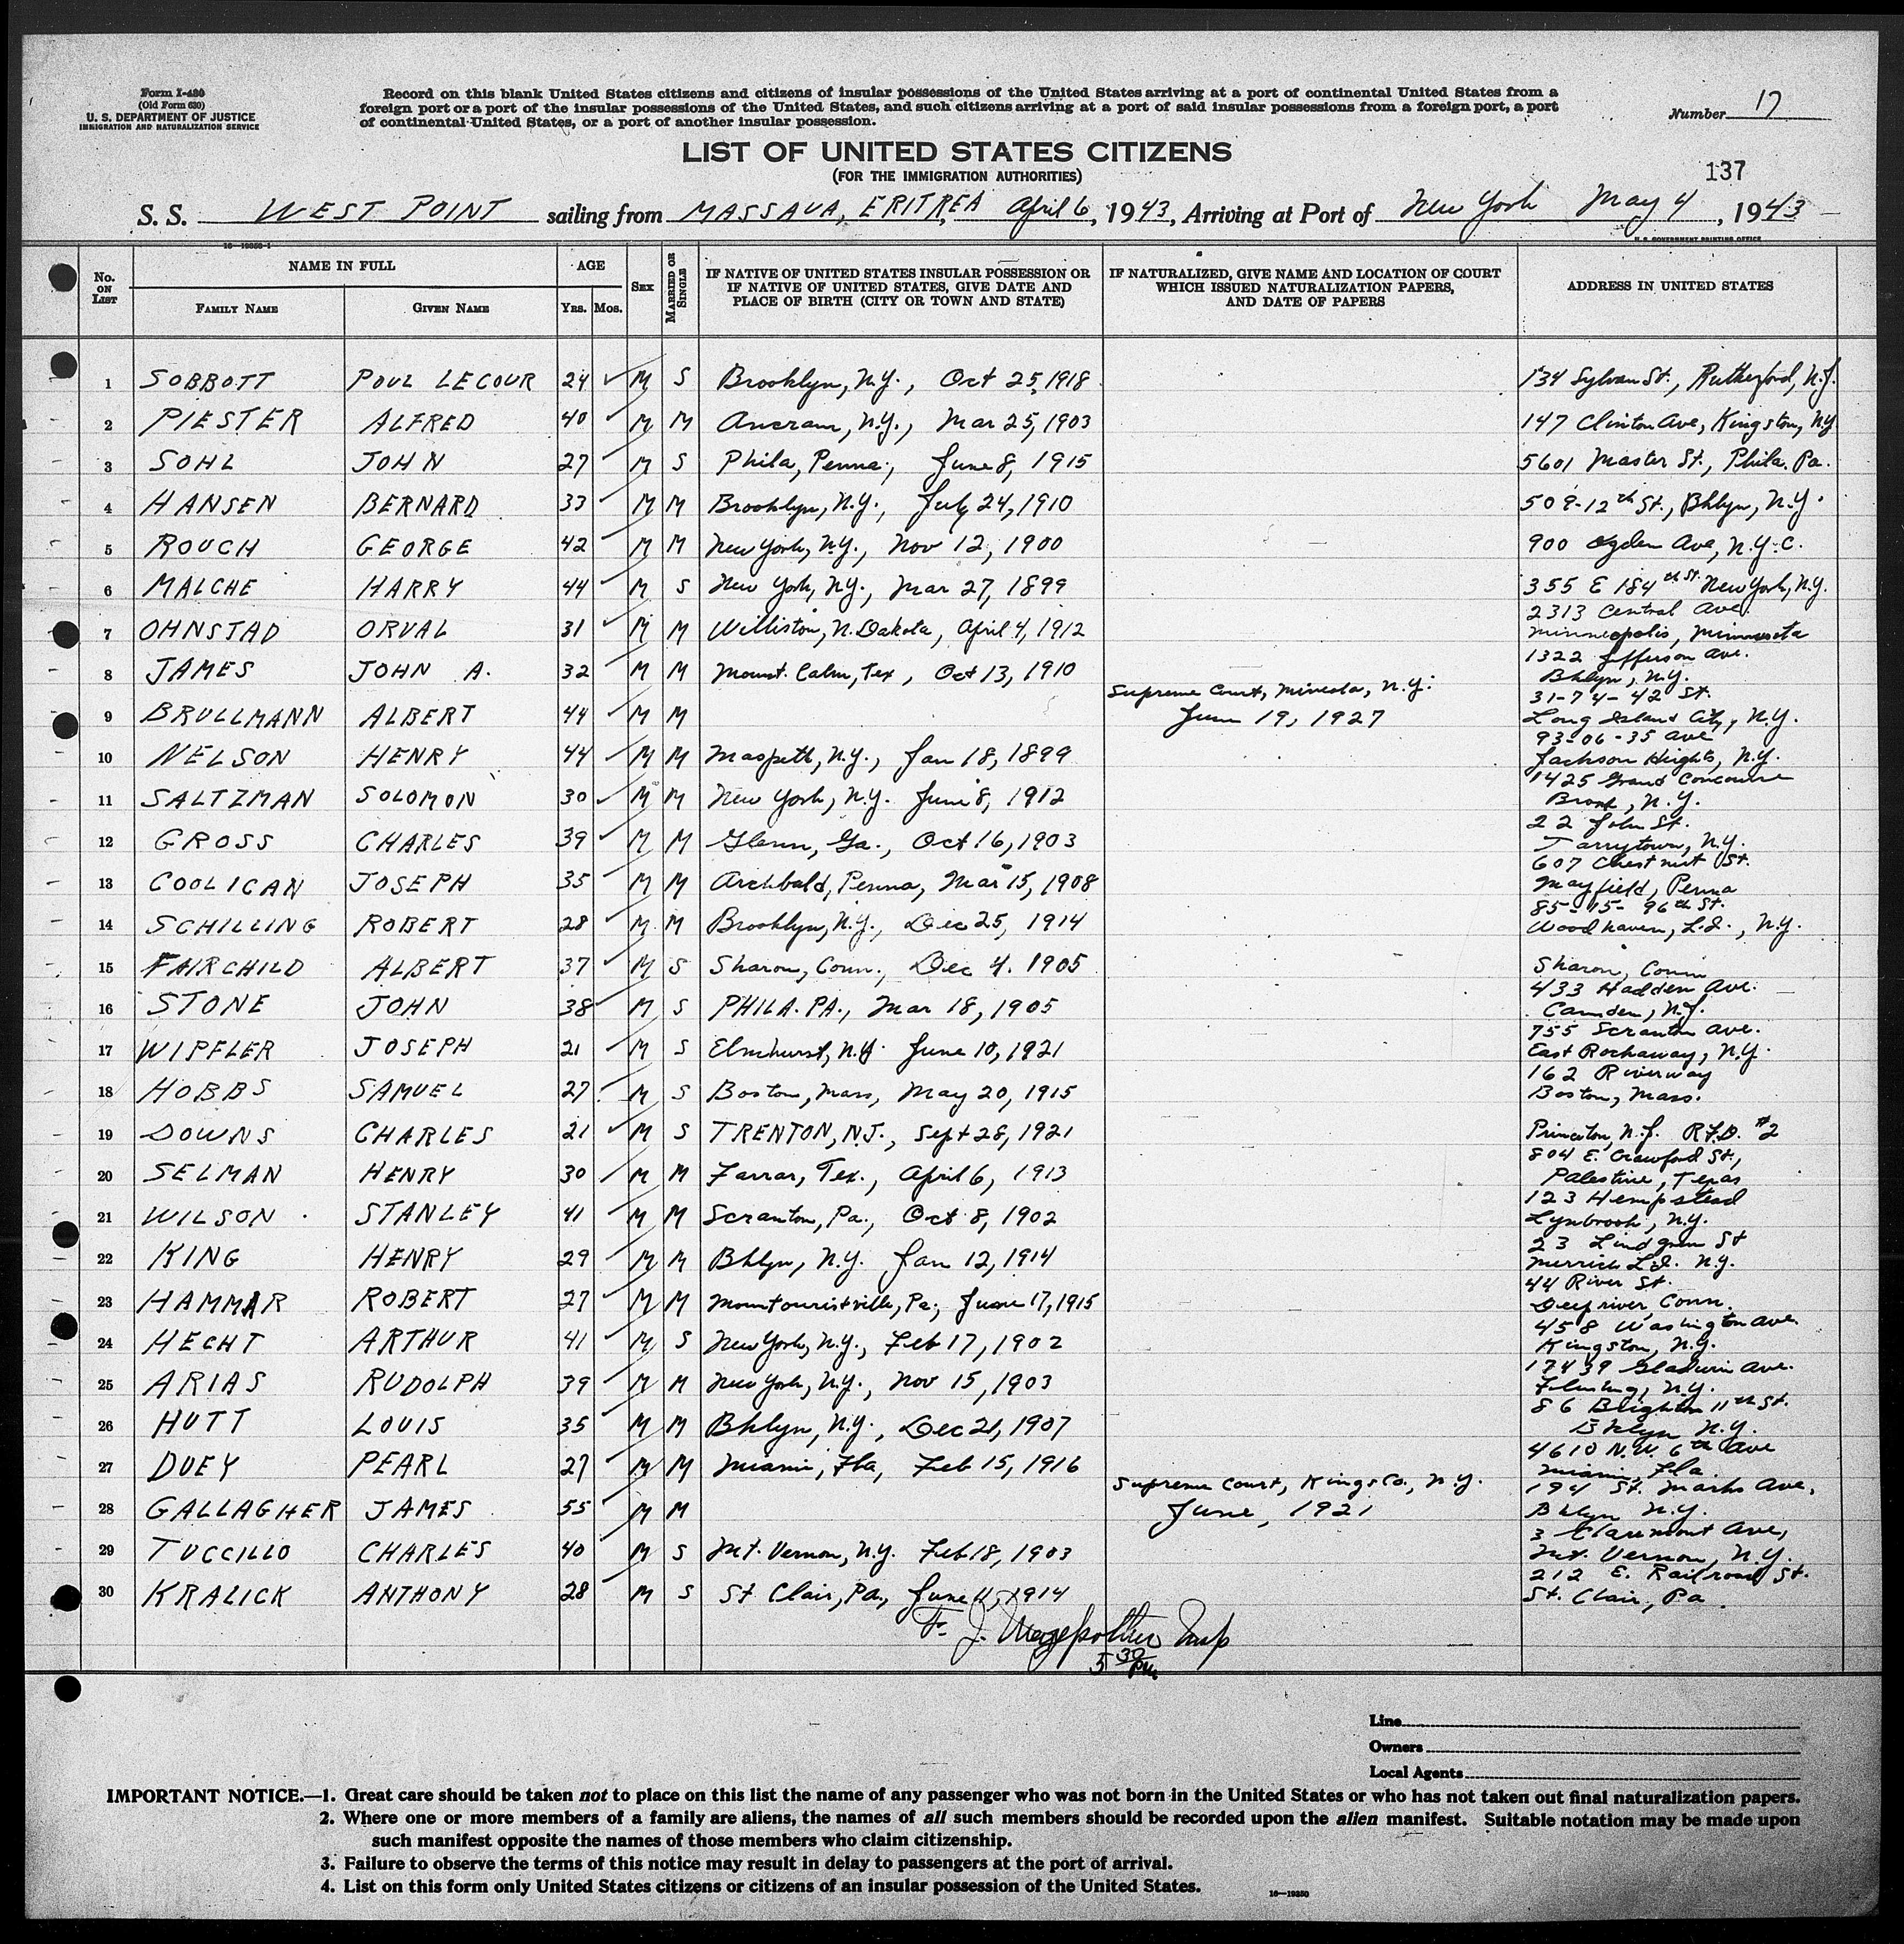 Form I-430
(Old Form 630)
U. S. DEPARTMENT OF JUSTICE
IMMIGRATION AND NATURALIZATION SERVICE
Record on this blank United States citizens and citizens of insular possessions of the United States arriving at a port of continental United States from a
foreign port or a port of the insular possessions of the United States, and such citizens arriving at a port of said insular possessions from a foreign port, a port
of continental United States, or a port of another insular possession.
Number 17
LIST OF UNITED STATES CITIZENS
(FOR THE IMMIGRATION AUTHORITIES)
137
S. S. WEST POINT sailing from MASSAUA, ERITREA April 6, 1943, Arriving at Port of New York May 4, 1943
16—19250-1
U. S. GOVERNMENT PRINTING OFFICE
No. ON LIST
NAME IN FULL
FAMILY NAME
GIVEN NAME
AGE
YRS. MOS.
SEX
MARRIED OR SINGLE
IF NATIVE OF UNITED STATES INSULAR POSSESSION OR
IF NATIVE OF UNITED STATES, GIVE DATE AND
PLACE OF BIRTH (CITY OR TOWN AND STATE)
IF NATURALIZED, GIVE NAME AND LOCATION OF COURT
WHICH ISSUED NATURALIZATION PAPERS,
AND DATE OF PAPERS
ADDRESS IN UNITED STATES
1 SOBBOTT POUL LECOUR 24 ✓ M S Brooklyn, N.Y., Oct 25, 1918 134 Sylvan St., Rutherford, N.J.
2 PIESTER ALFRED 40 ✓ M M Ancram, N.Y., Mar 25, 1903 147 Clinton Ave, Kingston, NY
3 SOHL JOHN 27 ✓ M S Phila, Penna., June 8, 1915 5601 Master St., Phila. Pa.
4 HANSEN BERNARD 33 ✓ M M Brooklyn, N.Y., July 24, 1910 509-12th St., Bklyn, N.Y.
5 ROUCH GEORGE 42 ✓ M M New York, N.Y., Nov 12, 1900 900 Ogden Ave, N.Y.C.
6 MALCHE HARRY 44 ✓ M S New York, N.Y., Mar 27, 1899 355 E 184th St. New York, N.Y.
7 OHNSTAD ORVAL 31 ✓ M M Williston, N. Dakota, April 4, 1912 2313 Central Ave
Minneapolis, Minnesota
8 JAMES JOHN A. 32 ✓ M M Mount. Calm, Tex, Oct 13, 1910 1322 Jefferson Ave.
Bklyn, N.Y.
9 BRULLMANN ALBERT 44 ✓ M M Supreme Court, Mineola, N.Y.
June 19, 1927 31-74-42 St.
Long Island City, N.Y.
10 NELSON HENRY 44 ✓ M M Maspeth, N.Y., Jan 18, 1899 93-06-35 Ave
Jackson Heights, N.Y.
11 SALTZMAN SOLOMON 30 ✓ M M New York, N.Y. June 8, 1912 1425 Grand Concourse
Bronx, N.Y.
12 GROSS CHARLES 39 ✓ M M Glenn, Ga., Oct 16, 1903 22 John St.
Tarrytown, N.Y.
13 COOLICAN JOSEPH 35 ✓ M M Archbald, Penna, Mar 15, 1908 607 Chestnut St.
Mayfield, Penna
14 SCHILLING ROBERT 28 ✓ M M Brooklyn, N.Y., Dec 25, 1914 85-15-96th St.
Woodhaven, L.I., N.Y.
15 FAIRCHILD ALBERT 37 ✓ M S Sharon, Conn., Dec 4, 1905 Sharon, Conn
16 STONE JOHN 38 ✓ M S PHILA. PA., Mar 18, 1905 433 Hadden Ave.
Camden, N.J.
17 WIPFLER JOSEPH 21 ✓ M S Elmhurst, N.Y. June 10, 1921 755 Scranton Ave.
East Rockaway, N.Y.
18 HOBBS SAMUEL 27 ✓ M S Boston, Mass, May 20, 1915 162 Riverway
Boston, Mass.
19 DOWNS CHARLES 21 ✓ M S TRENTON, N.J., Sept 28, 1921 Princeton, N.J. R.F.D. #2
20 SELMAN HENRY 30 ✓ M M Farrar, Tex., April 6, 1913 804 E. Crawford St.,
Palestine, Texas
21 WILSON STANLEY 41 ✓ M M Scranton, Pa., Oct 8, 1902 123 Hempstead
Lynbrook, N.Y.
22 KING HENRY 29 ✓ M M Bklyn, N.Y. Jan 12, 1914 23 Lindgren St
Merrick L.I. N.Y.
23 HAMMAR ROBERT 27 ✓ M M Mountouristville, Pa., June 17, 1915 44 River St.
Deep river, Conn.
24 HECHT ARTHUR 41 ✓ M S New York, N.Y., Feb 17, 1902 458 Washington Ave.
Kingston, N.Y.
25 ARIAS RUDOLPH 39 ✓ M M New York, N.Y., Nov 15, 1903 17439 Gladwin Ave.
Flushing, N.Y.
26 HUTT LOUIS 35 ✓ M M Bklyn, N.Y., Dec 21, 1907 86 Brighton 11th St.
Bklyn N.Y.
27 DUEY PEARL 27 ✓ M M Miami, Fla, Feb 15, 1916 4610 N.W. 6th Ave
Miami, Fla.
28 GALLAGHER JAMES 55 ✓ M M Supreme Court, Kings Co., N.Y.
June, 1921 194 St. Marks Ave,
Bklyn N.Y.
29 TUCCILLO CHARLES 40 ✓ M S Mt. Vernon, N.Y. Feb 18, 1903 3 Claremont Ave,
Mt. Vernon, N.Y.
30 KRALICK ANTHONY 28 ✓ M S St Clair, Pa., June 11, 1914 212 E. Railroad St.
St. Clair, Pa.
F. J. Insp
5 30 PM
Line
Owners
Local Agents
IMPORTANT NOTICE.—1. Great care should be taken not to place on this list the name of any passenger who was not born in the United States or who has not taken out final naturalization papers.
2. Where one or more members of a family are aliens, the names of all such members should be recorded upon the alien manifest. Suitable notation may be made upon
such manifest opposite the names of those members who claim citizenship.
3. Failure to observe the terms of this notice may result in delay to passengers at the port of arrival.
4. List on this form only United States citizens or citizens of an insular possession of the United States.
16—19250